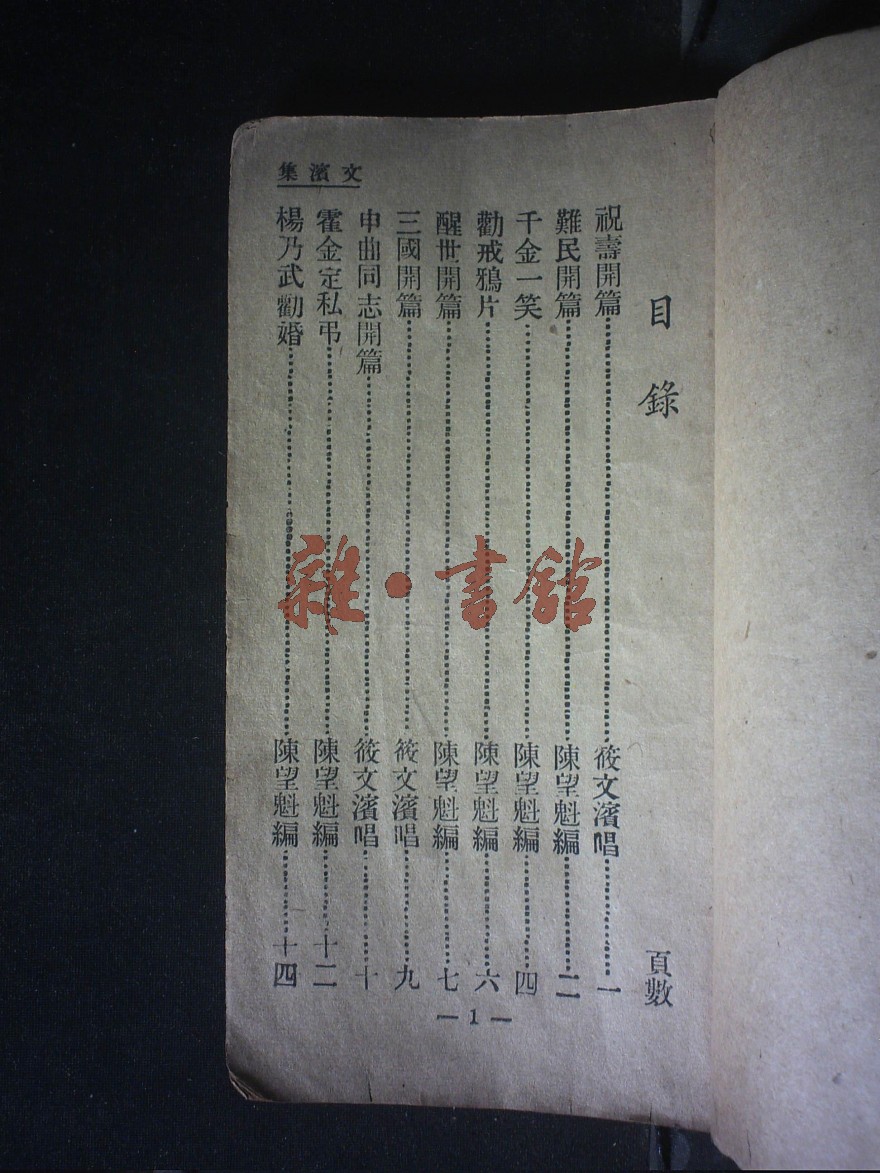 文濱集
目錄 頁數
祝壽開篇 筱文濱唱 一
難民開篇 陳望魁編 二
千金一笑 陳望魁編 四
勸戒鴉片 陳望魁編 六
醒世開篇 陳望魁編 七
三國開篇 筱文濱唱 九
申曲同志開篇 筱文濱唱 十
霍金定私弔 陳望魁編 十二
楊乃武勸婚 陳望魁編 十四
— 1 —
雜·書館